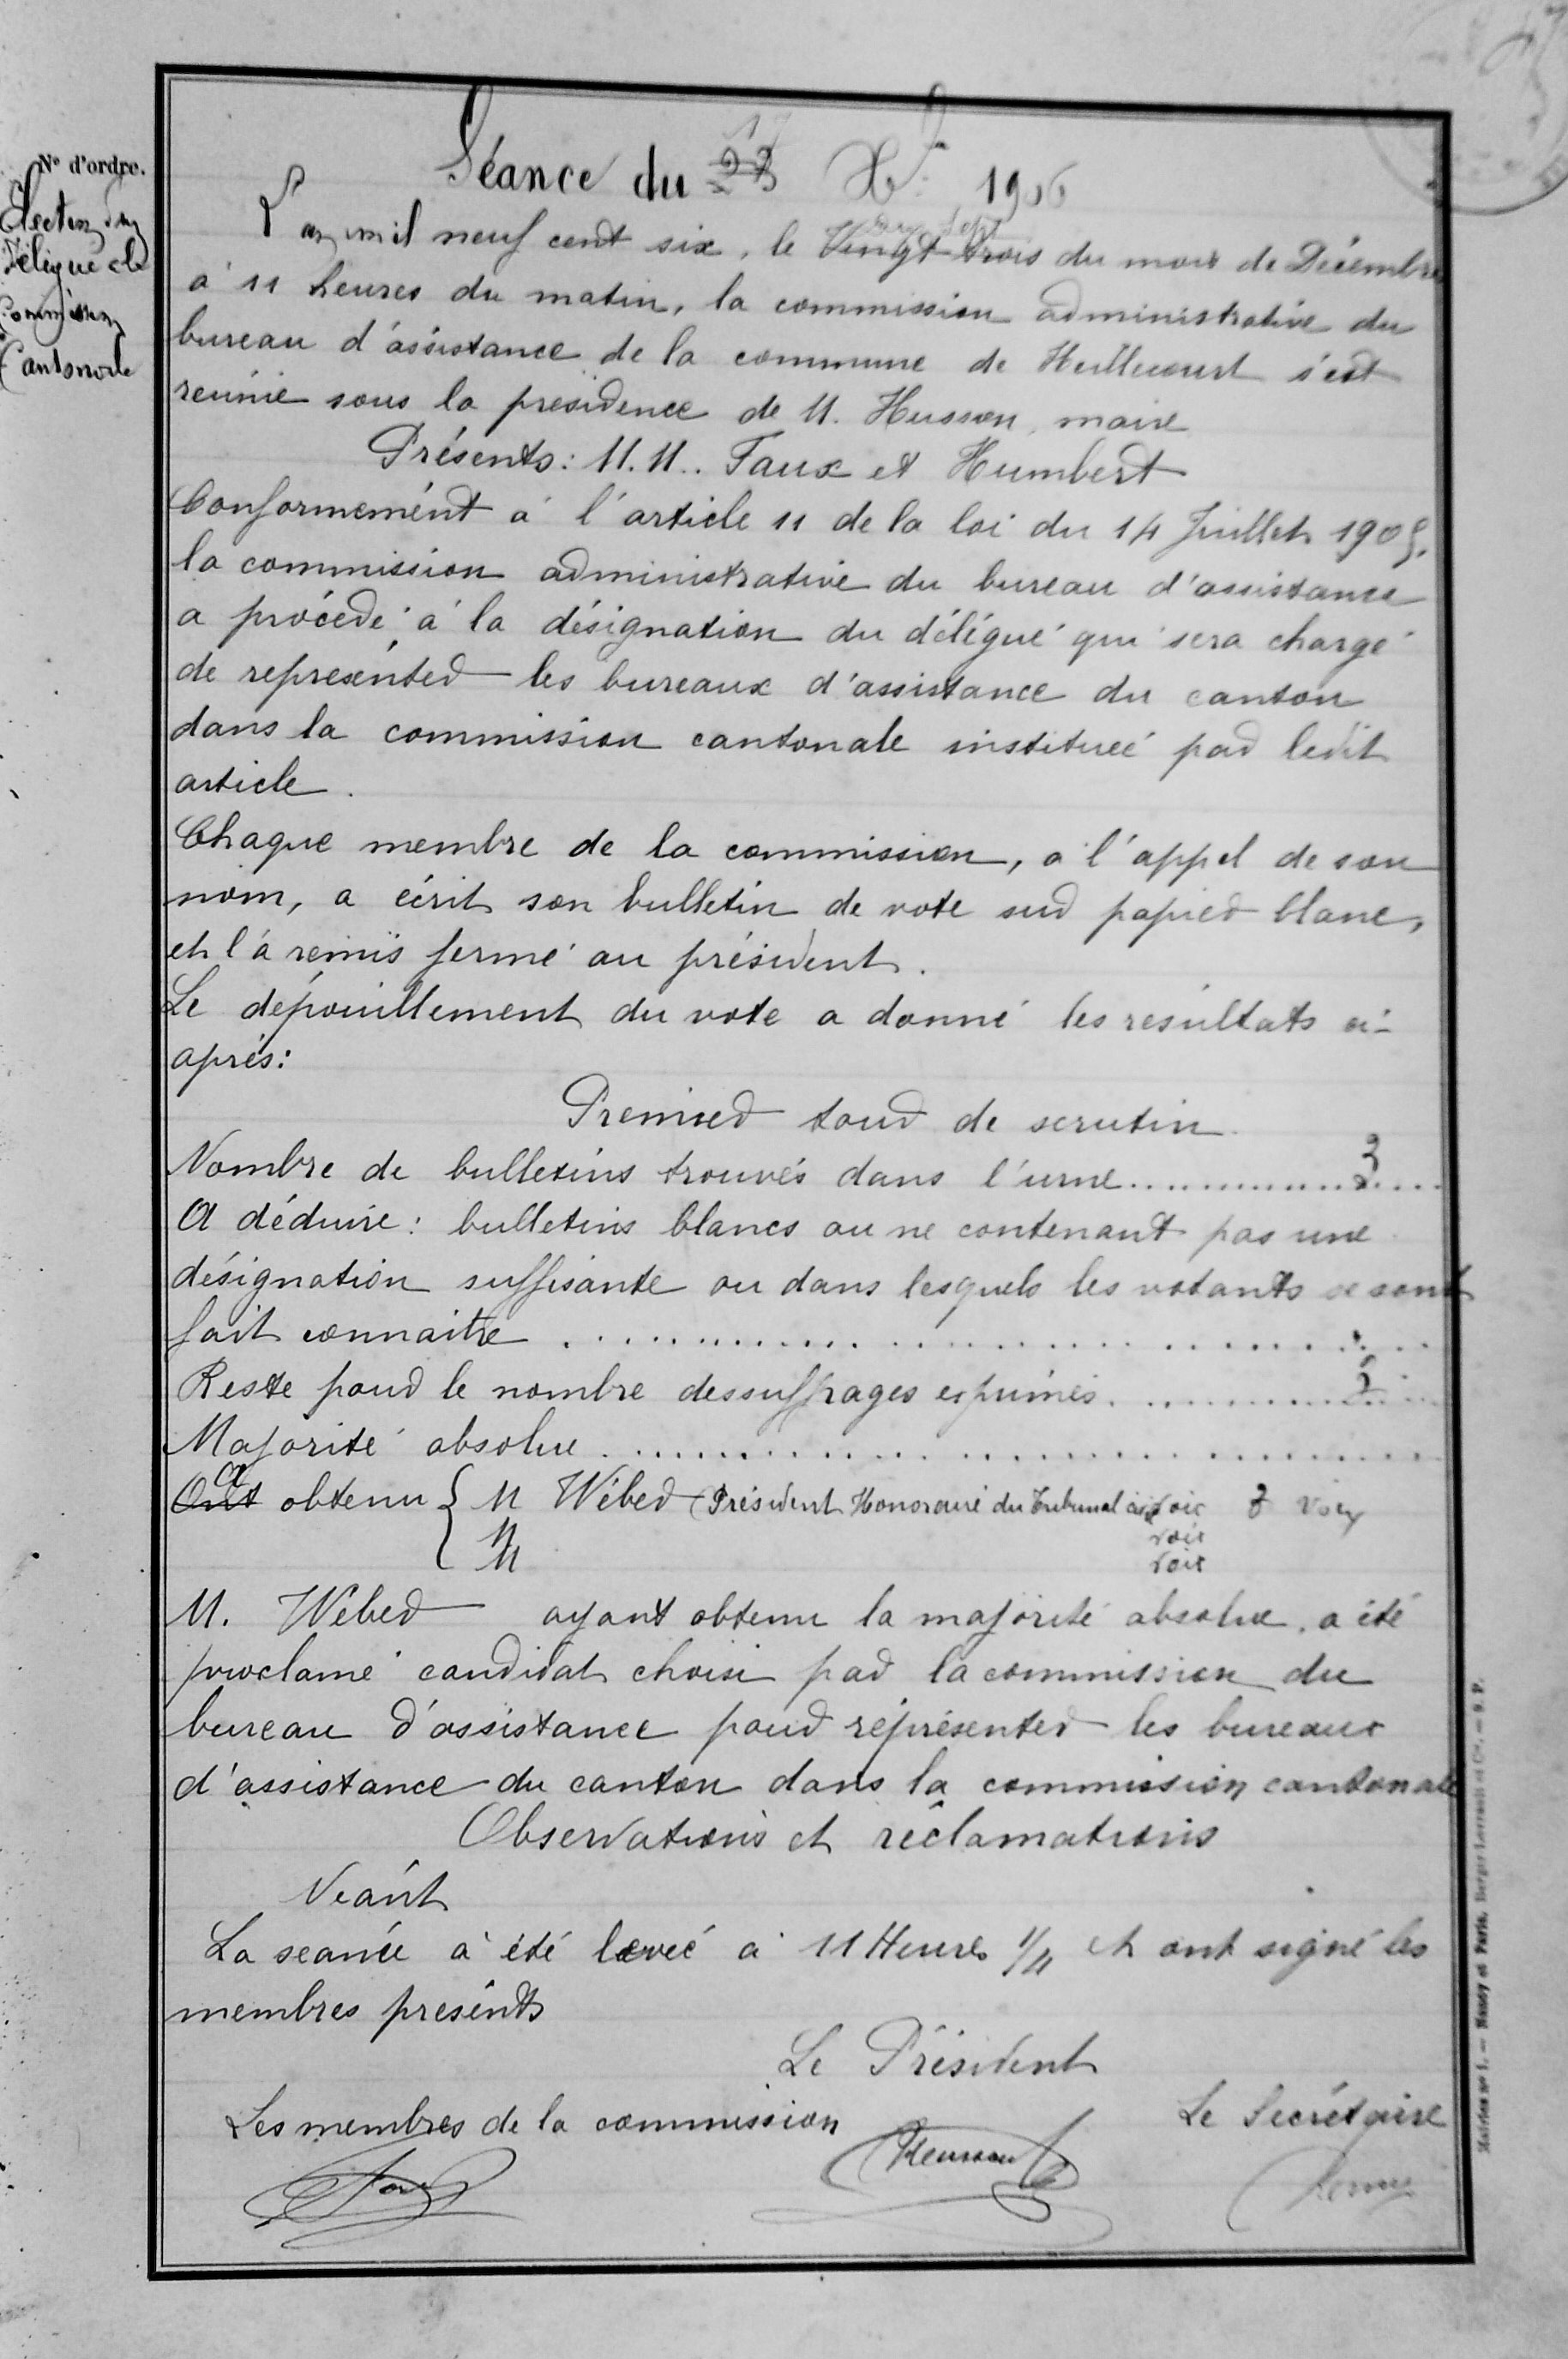 N° d'ordre.
Election d'un
Délégué à la
Commission
Cantonale
Séance du 23 17 Xbre 1906
L'an mil neuf cent six, le Vingt trois dix sept du mois de Décembre
à 11 heures du matin, la commission administrative du
bureau d'assistance de la commune de Heillecourt s'est
réunie sous la présidence de M. Husson, maire
Présents: M.M.. Faux et Humbert
Conformément à l'article 11 de la loi du 14 Juillet 1905,
la commission administrative du bureau d'assistance
a procédé à la désignation du délégué qui sera chargé
de représenter les bureaux d'assistance du canton
dans la commission cantonale instituée par ledit
article.
Chaque membre de la commission, à l'appel de son
nom, a écrit son bulletin de vote sur papier blanc,
et l'a remis fermé au président.
Le dépouillement du vote a donné les résultats ci-
après:
Premier tour de scrutin
Nombre de bulletins trouvés dans l'urne................3....
A déduire: bulletins blancs ou ne contenant pas une
désignation suffisante ou dans lesquels les votants se sont
fait connaitre ..............................
Reste pour le nombre des suffrages exprimés. ............3....
Majorité absolue ..............................
Ont a obtenu { M Wéber Président Honoraire du Tribunal civil voix 3 voix
M voix
M voix
M. Wéber ayant obtenu la majorité absolue, a été
proclamé candidat choisi par la commission du
bureau d'assistance pour représenter les bureaux
d'assistance du canton dans la commission cantonale
Observations et réclamations
Néant
La seance a été levée à 11 Heures 1/4 et ont signé les
membres présents
Le Président
Les membres de la commission
Le Secrétaire
Faux
Husson
Mairies n° 1. — Nancy et Paris, Berger-Levrault et Cie. — 9. P.